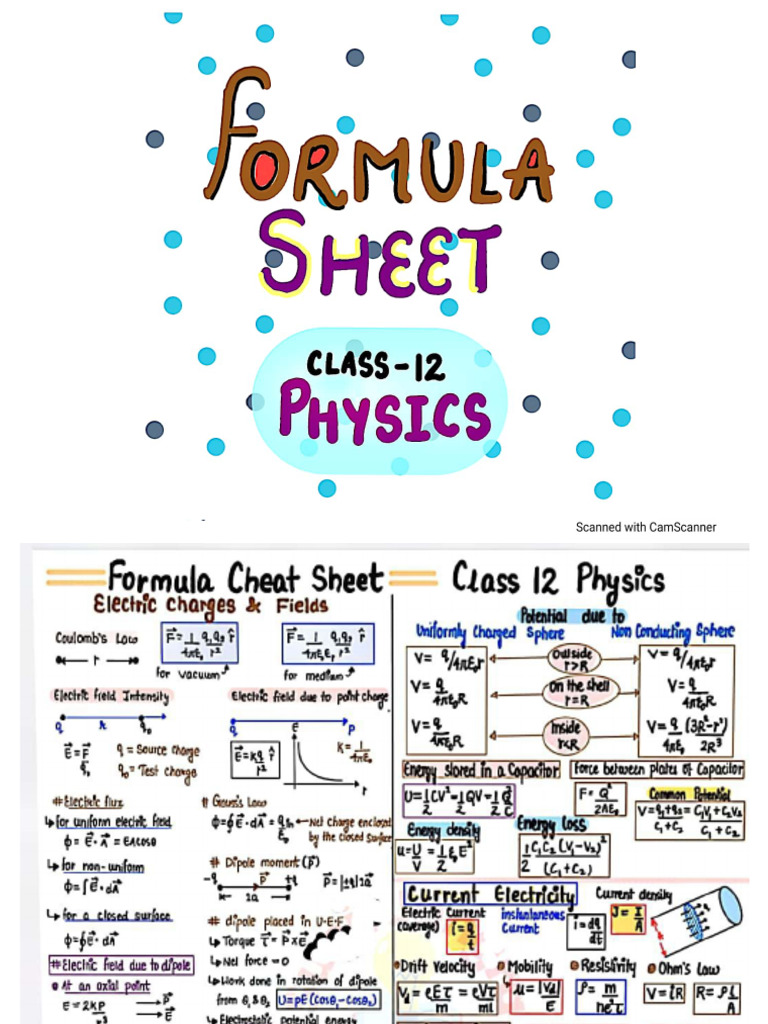 FORMULA
SHEET
CLASS-12
PHYSICS
Scanned with CamScanner
Formula Cheat Sheet
Electric Charges & Fields
Coulomb's Law
r
F⃗ = 1/4πε₀ q₁q₂/r² r̂
for vacuum
F⃗ = 1/4πε₀εᵣ q₁q₂/r² r̂
for medium
Electric field Intensity
q
r
q₀
E⃗ = F⃗/q₀
q = Source charge
q₀ = Test charge
Electric field due to point charge
q
P
E⃗ = kq/r² r̂
E
r
K = 1/4πε₀
# Electric flux
↳ for uniform electric field
ϕ = E⃗·A⃗ = EAcosθ
↳ for non-uniform
ϕ = ∫E⃗·dA⃗
↳ for a closed surface
ϕ = ∮E⃗·dA⃗
# Electric field due to dipole
● At an axial point
E = 2KP/r³
P⃗
E⃗
# Gauss's Law
ϕ = ∮E⃗·dA⃗ = qin/ε₀
Net Charge enclosed
by the closed Surface
# Dipole moment (p⃗)
-q
P⃗
+q
2a
p⃗ = |±q|2a⃗
# dipole placed in U·E·F
↳ Torque τ⃗ = P⃗×E⃗
↳ Net force = 0
↳ Work done in rotation of dipole
from θ₁ & θ₂
U = pE(Cosθ₁-Cosθ₂)
↳ Electrostatic potential energy
Class 12 Physics
Potential due to
Uniformly Charged Sphere
Non Conducting Sphere
V = q/4πε₀r
Outside
r>R
V = q/4πε₀r
V = q/4πε₀R
On the shell
r=R
V = q/4πε₀R
V = q/4πε₀R
Inside
r<R
V = q/4πε₀ (3R²-r²)/2R³
Energy stored in a Capacitor
U = 1/2 CV² = 1/2 QV = 1/2 Q²/C
Force between plates of Capacitor
F = Q²/2Aε₀
Common Potential
V = q₁+q₂/C₁+C₂ = C₁V₁+C₂V₂/C₁+C₂
Energy density
u = U/V = 1/2 ε₀E²
Energy Loss
1/2 C₁C₂(V₁-V₂)²/(C₁+C₂)
Current Electricity
Electric Current
(average)
i = q/t
instantaneous
Current
i = dq/dt
Current density
J = I/A
Drift Velocity
Vd = eEτ/m = eVτ/mℓ
Mobility
μ = |Vd|/E
Resistivity
ρ = m/ne²τ
Ohm's Law
V = iR
R = ρ ℓ/A